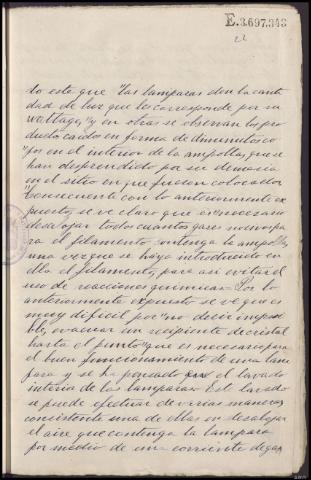 E.3.697.343
22
to este que "las lamparas den la canti
dad de luz que les corresponde por su
wattage," y en otras se observan los pro
ductos caidos en forma de diminutos co
"pos en el interior de la ampolla, que se
han desprendido por ser demasia
en el sitio en que fueron colocados
"Consecuente con lo anteriormente ex
puesto, se ve claro que es "necesario
desalojar todos cuantos gases no incorpo
ra el filamento contenga la ampolla,
una vez que se haya introducido en
ella el filamento, para asi evitar el
uso de reacciones quimicas = Por lo
anteriormente expuesto se ve que es
muy dificil por "no decir imposi
ble, evacuar un recipiente de cristal
hasta el punto "que es necesario para
el buen funcionamiento de una lam
para y se ha pensado en el lavado
interior de las lamparas = Este lavado
se puede efectuar de varias maneras,
consistente una de ellas en desalojar
el aire que contenga la lampara
por medio de una corriente de gas